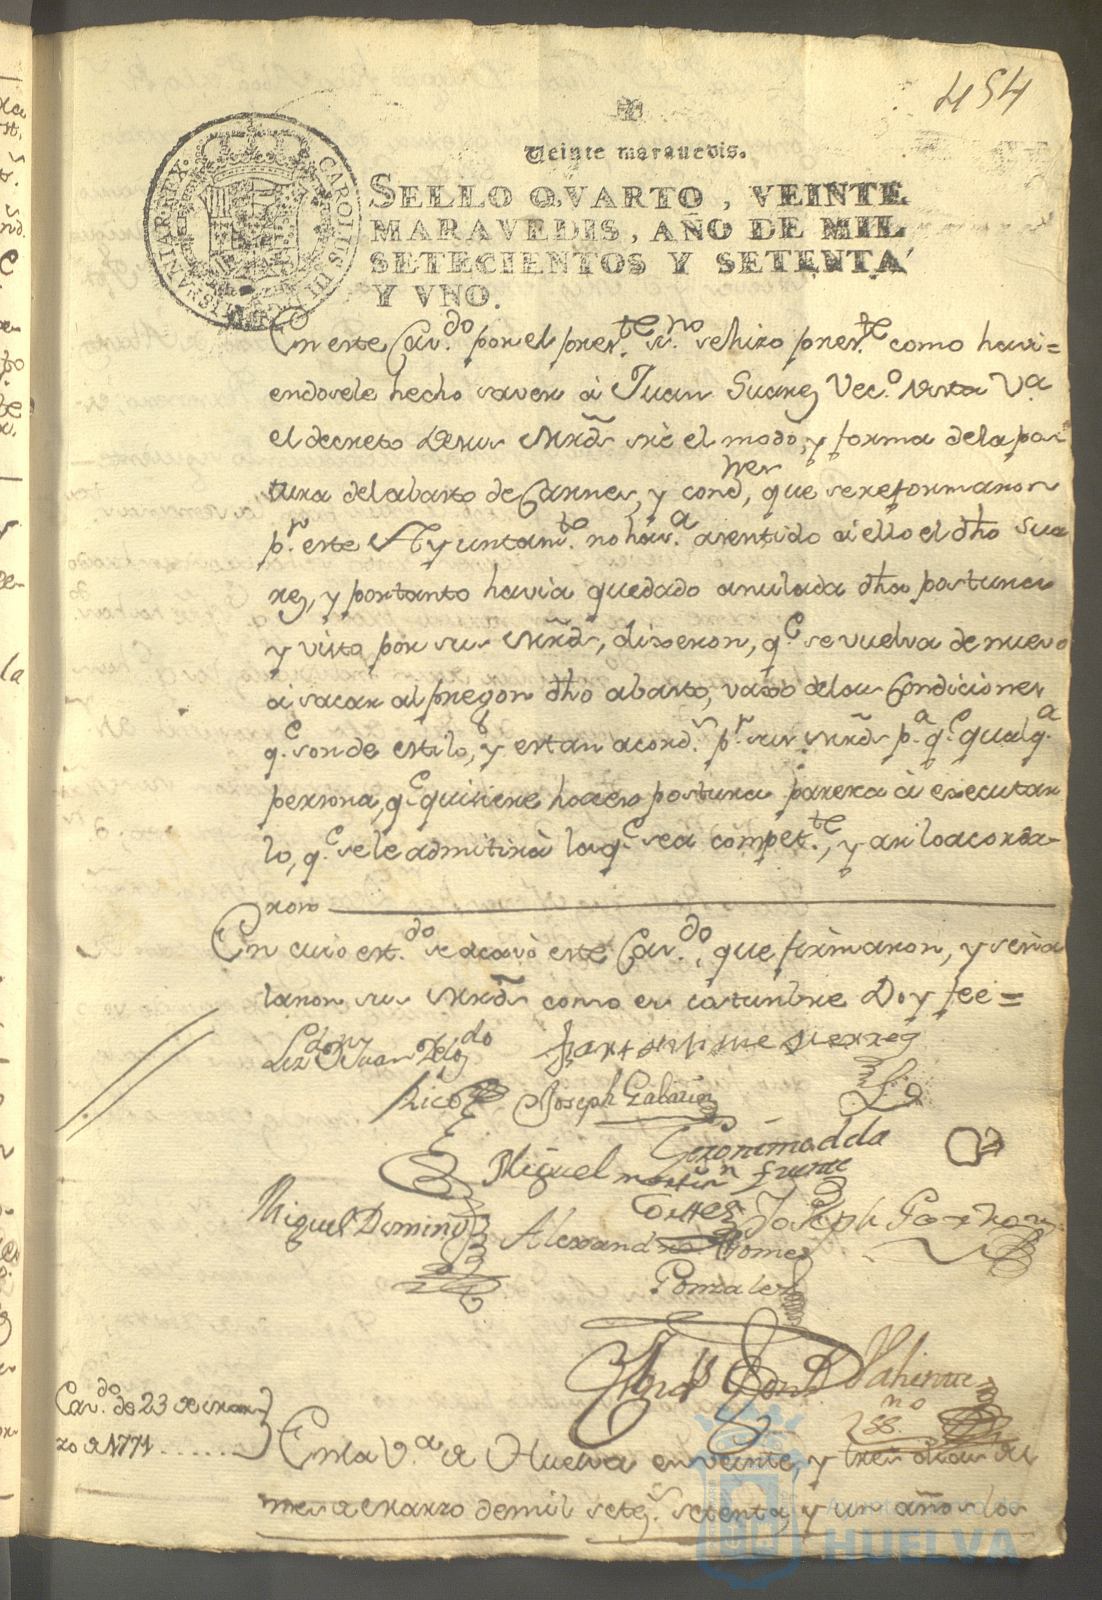 454
Veinte maravedis.
SELLO QVARTO, VEINTE
MARAVEDIS, AÑO DE MIL
SETECIENTOS Y SETENTA
Y VNO.
CAROLUS III D. G. HISPANIAR. REX.
En este Cav.do por el pres.te ss.no se hizo pres.te como havi=
endosele hecho saver â Juan Suarez Vec.o desta V.a
el decreto de sus Mrds sre el modo, y forma de la pos
tura del abasto de Carnes, y cond.nes, que se reformaron
p.r este Ayuntam.to no hav.a asentido â ello el dho Sua
rez, y por tanto havia quedado anulada dha postura
y visto por sus Mrds, dixeron, q.e se vuelva de nuevo
â sacar al pregon dho abasto, vaxo de las Condiciones
q.e son de estilo, y estan acord.s p.r sus Mrds p.a q.e qualq.a
persona, q.e quisiere hacer postura paresca â executar
lo, q.e se le admitirà la q.e sea compet.te, y asi lo acorda-
ron
En cuio est.do se acavò este Cav.do, que firmaron, y seña
laron sus Mrds como es costumbre Doy fee =
Lizdo Dn Juan Delg.do
Rico
Joseph Gabarin
Geronimo de la
fuente
Miguel martin
Torres
Joseph Garzon
Miguel Doming
Alexandro Gomes
Gonzales
Valiente
ss.no
Cav.do de 23 de mar
zo de 1771
En la V.a de Huelva en veinte, y tres dias del
mes de marzo de mil sete.s setenta, y un años los
Ayuntamiento de
HUELVA